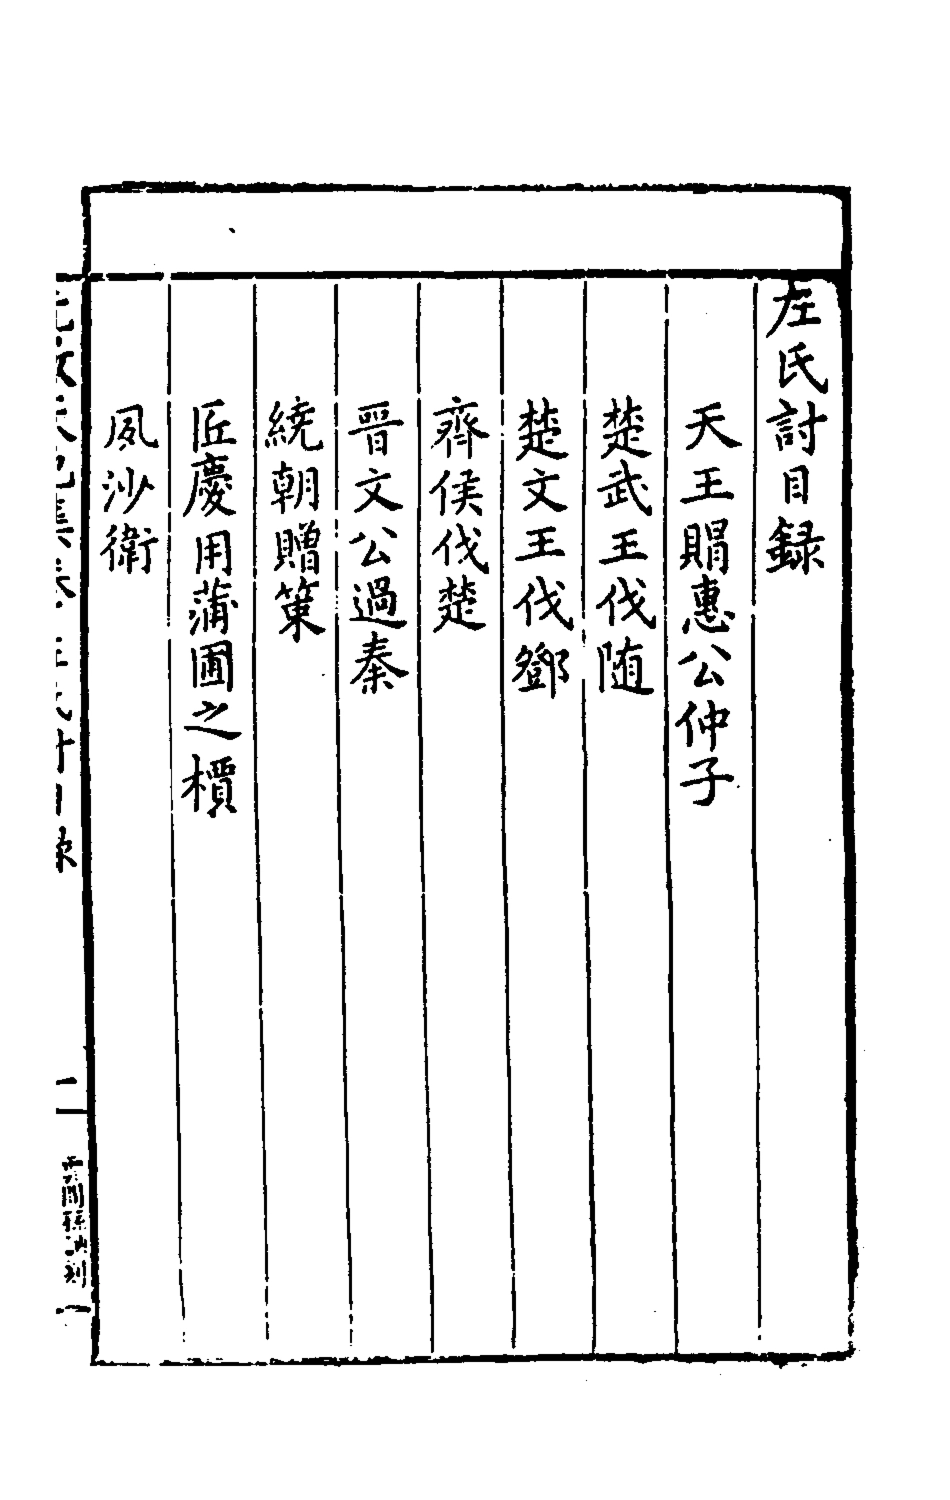 左氏討目録
天王賵惠公仲子
楚武王伐随
楚文王伐鄧
齊侯伐楚
晉文公過秦
繞朝贈策
匠慶用蒲圃之檟
夙沙衛
二